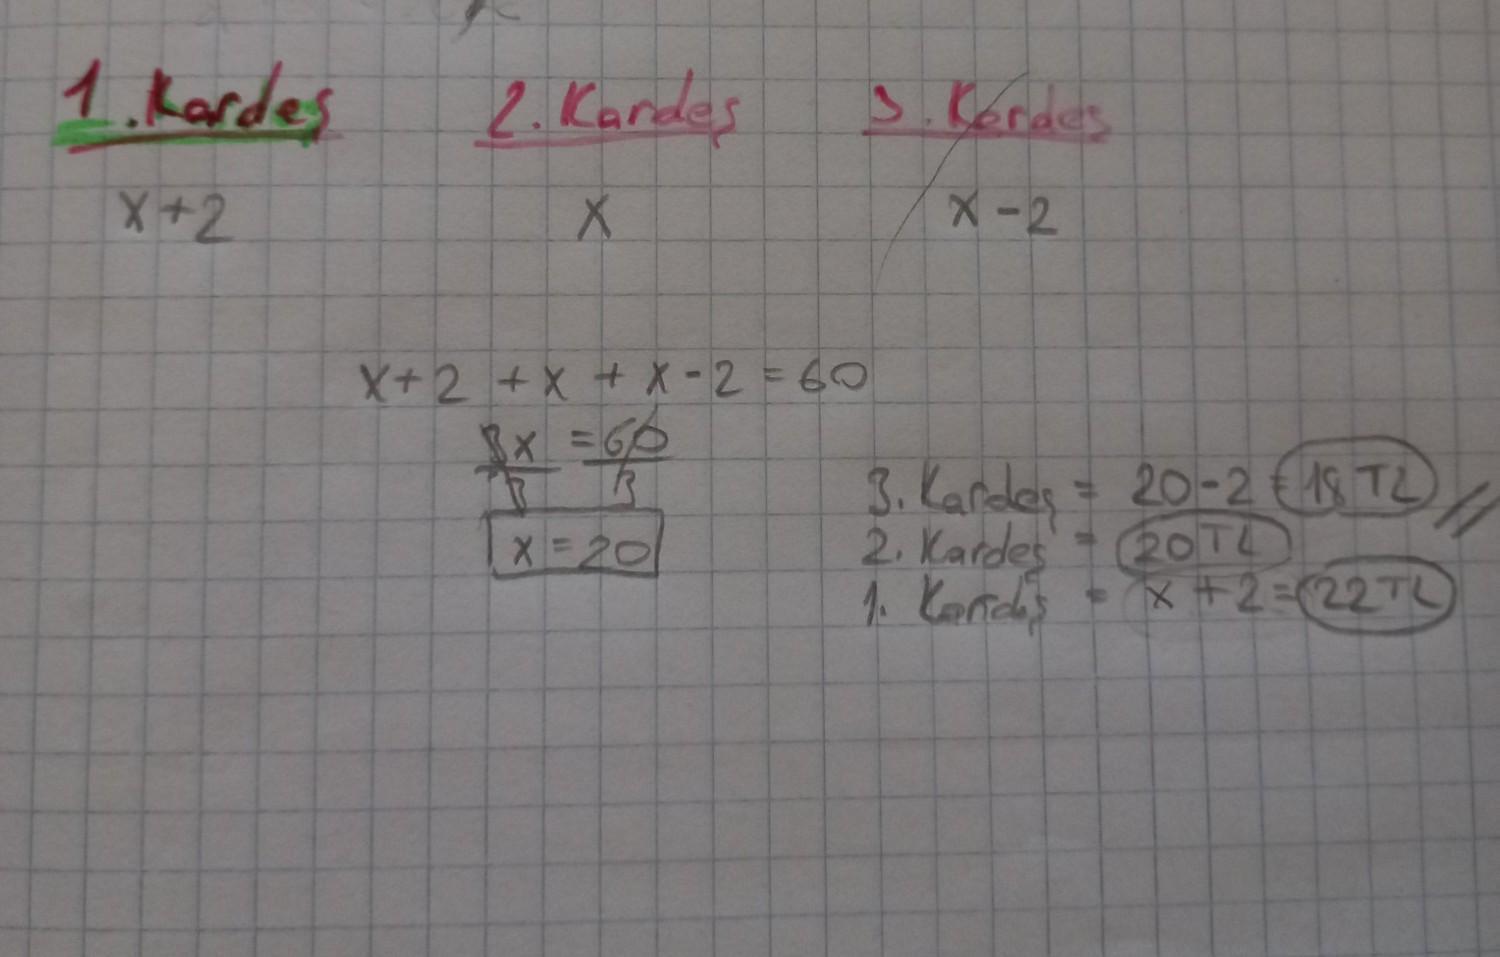 1. Kardeş 2. Kardeş 3. Kardeş
x+2 x x-2
x+2 +x + x-2 = 60
3x = 60
3 3
x = 20
3. Kardeş = 20-2 = 18 TL
2. Kardeş = 20 TL
1. Kardeş = x+2 = 22 TL